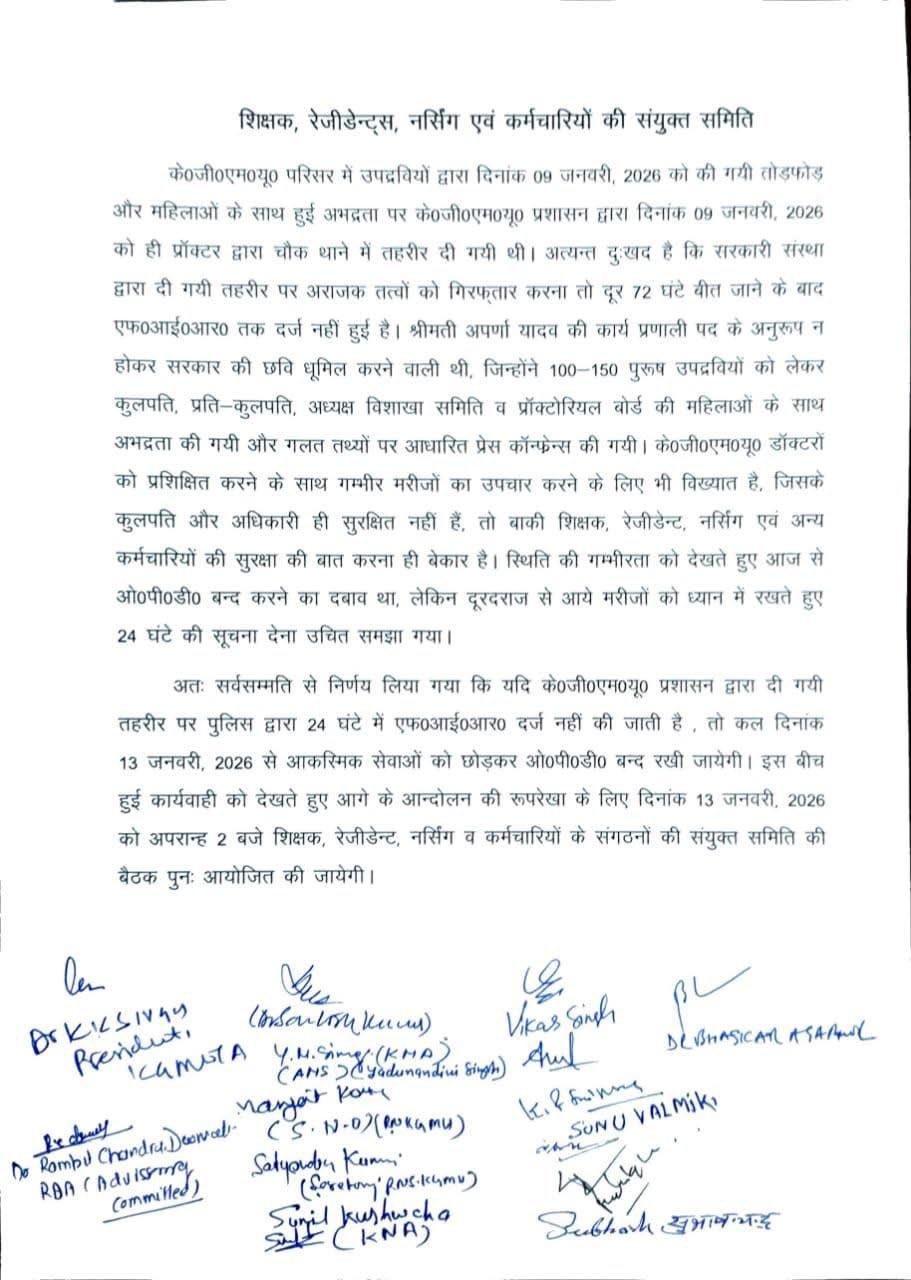 शिक्षक, रेजीडेन्ट्स, नर्सिंग एवं कर्मचारियों की संयुक्त समिति
के0जी0एम0यू0 परिसर में उपद्रवियों द्वारा दिनांक 09 जनवरी, 2026 को की गयी तोड़फोड़
और महिलाओं के साथ हुई अभद्रता पर के0जी0एम0यू0 प्रशासन द्वारा दिनांक 09 जनवरी, 2026
को ही प्रॉक्टर द्वारा चौक थाने में तहरीर दी गयी थी। अत्यन्त दुःखद है कि सरकारी संस्था
द्वारा दी गयी तहरीर पर अराजक तत्वों को गिरफ्तार करना तो दूर 72 घंटे बीत जाने के बाद
एफ0आई0आर0 तक दर्ज नहीं हुई है। श्रीमती अपर्णा यादव की कार्य प्रणाली पद के अनुरूप न
होकर सरकार की छवि धूमिल करने वाली थी, जिन्होंने 100–150 पुरूष उपद्रवियों को लेकर
कुलपति, प्रति–कुलपति, अध्यक्ष विशाखा समिति व प्रॉक्टोरियल बोर्ड की महिलाओं के साथ
अभद्रता की गयी और गलत तथ्यों पर आधारित प्रेस कॉन्फ्रेन्स की गयी। के0जी0एम0यू0 डॉक्टरों
को प्रशिक्षित करने के साथ गम्भीर मरीजों का उपचार करने के लिए भी विख्यात है, जिसके
कुलपति और अधिकारी ही सुरक्षित नहीं हैं, तो बाकी शिक्षक, रेजीडेन्ट, नर्सिंग एवं अन्य
कर्मचारियों की सुरक्षा की बात करना ही बेकार है। स्थिति की गम्भीरता को देखते हुए आज से
ओ0पी0डी0 बन्द करने का दबाव था, लेकिन दूरदराज से आये मरीजों को ध्यान में रखते हुए
24 घंटे की सूचना देना उचित समझा गया।
अतः सर्वसम्मति से निर्णय लिया गया कि यदि के0जी0एम0यू0 प्रशासन द्वारा दी गयी
तहरीर पर पुलिस द्वारा 24 घंटे में एफ0आई0आर0 दर्ज नहीं की जाती है , तो कल दिनांक
13 जनवरी, 2026 से आकस्मिक सेवाओं को छोड़कर ओ0पी0डी0 बन्द रखी जायेगी। इस बीच
हुई कार्यवाही को देखते हुए आगे के आन्दोलन की रूपरेखा के लिए दिनांक 13 जनवरी, 2026
को अपरान्ह 2 बजे शिक्षक, रेजीडेन्ट, नर्सिंग व कर्मचारियों के संगठनों की संयुक्त समिति की
बैठक पुनः आयोजित की जायेगी।
Dr K.K SINGH
President,
KGMUTA
(Dr Santosh Kumar)
Vikas Singh
Dr BHASKAR AGARWAL
Y.N. Singh (KNA)
(ANS) (Yadunandini Singh)
Manjeet Kaur
(S.N.O)
SONU VALMIKI
RDA (Advisory
Committed)
Satyendra Kumar
Sunil Kushwaha
(KNA)
Subhash सुभाष चन्द्र